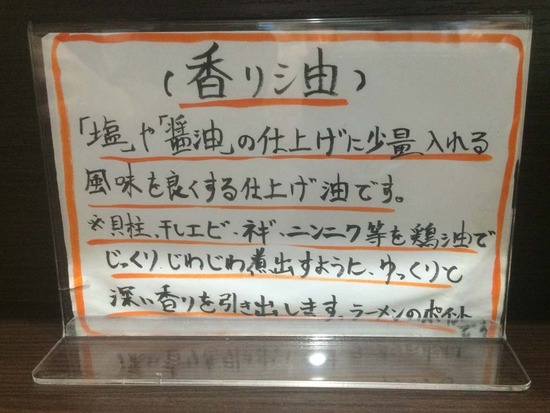 (香り油)
「塩」や「醤油」の仕上げに少量入れる
風味を良くする仕上げ油です。
※貝柱、干しエビ、ネギ、ニンニク等を鶏油で
じっくり、じわじわ煮出すように、ゆっくりと
深い香りを引き出します。ラーメンのポイント
です